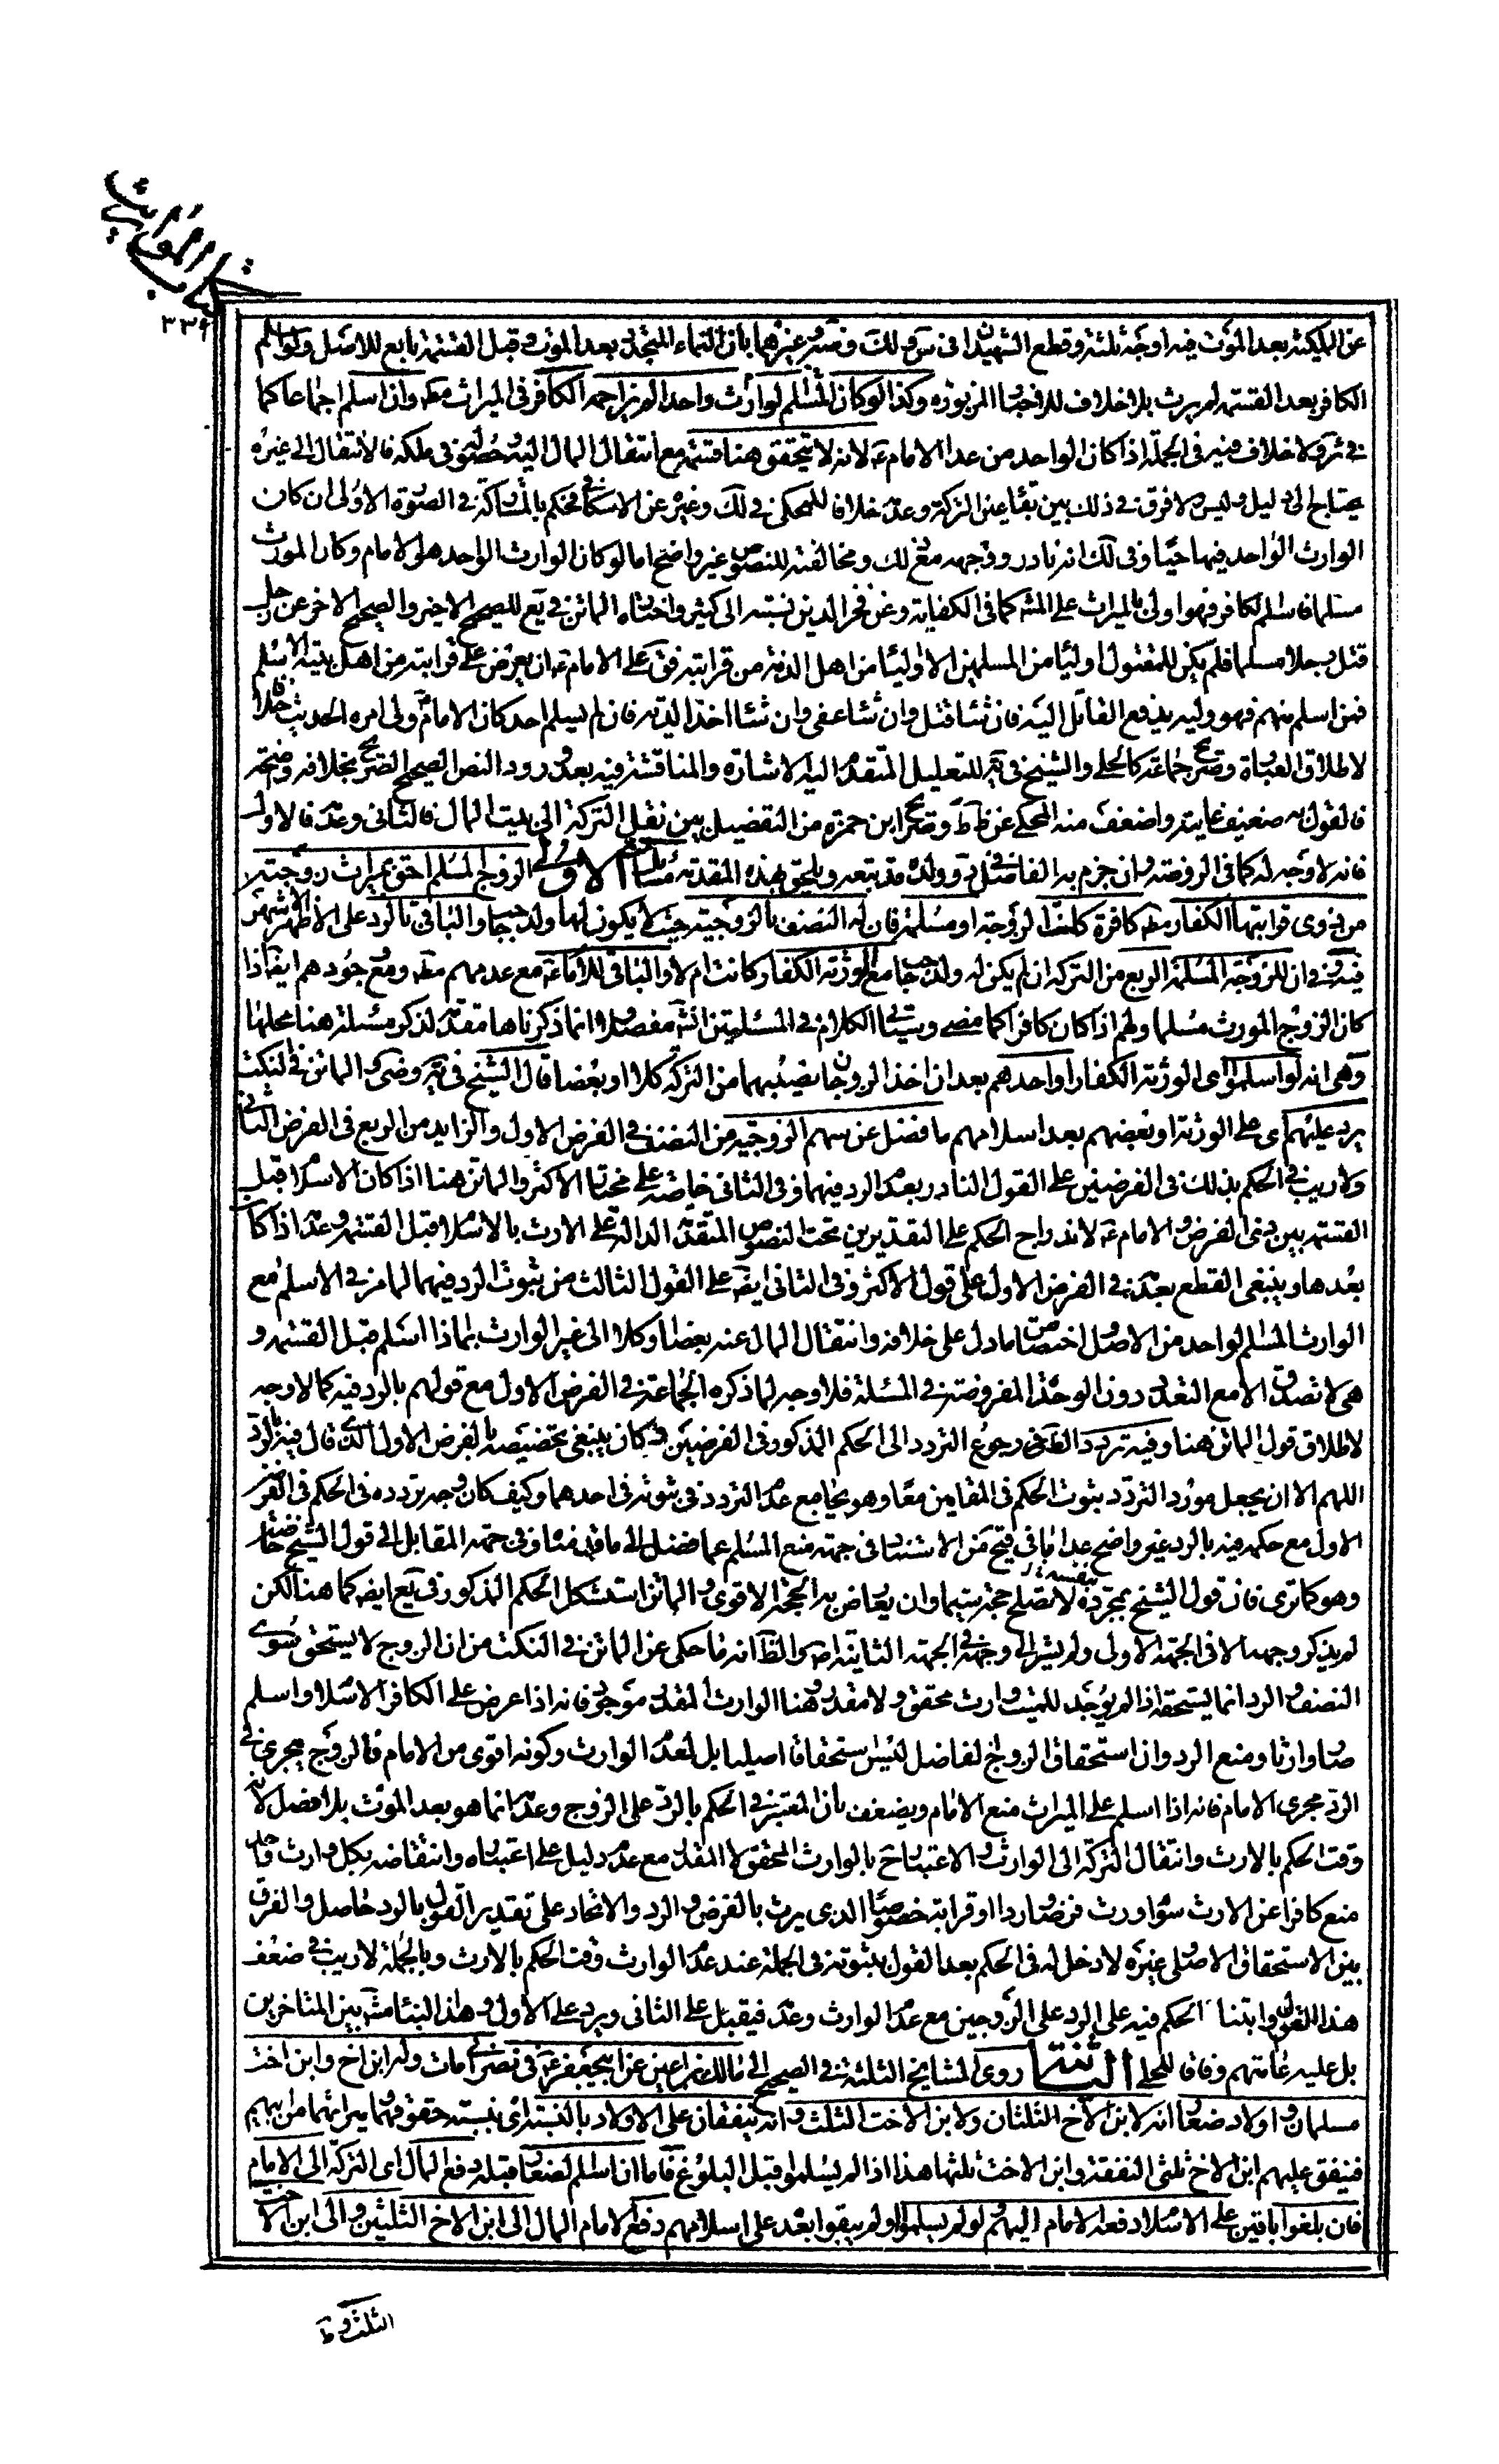 كتاب المواريث
٣٣٩
عن الملكية بعد الموت فيه اوجه ثلثة وقطع الشهيدان في س ولك وغيرهما بان النماء المتجدد بعد الموت وقبل القسمة تابع للاصل ولو اسلم
الكافر بعد القسمة لم يرث بلا خلاف للاخبار المزبورة وكذا لو كان المسلم الوارث واحدا لم يزاحمه الكافر في الميراث مط وان اسلم اجماعا كما
في ئر ولا خلاف فيه في الجملة اذا كان الواحد من عدا الامام ع لانه لا يتحقق هنا قسمة مع انتقال المال اليه وحصوله في ملكه فالانتقال الى غيره
يحتاج الى دليل وليس ولا فرق في ذلك بين بقاء عين التركة وعدمه خلافا للمحكي في لك وغيره عن الاسكافي فحكم بالمشاركة في الصورة الاولى ان كان
الوارث الواحد فيها حيا وفي لك انه نادر ووجهه مع ذلك ومخالفته للنصوص غير واضح اما لو كان الوارث الواحد هو الامام وكان المورث
مسلما فاسلم الكافر فهو اولى بالميراث على المش كما في الكفاية وعن فخر الدين نسبته الى كثير واختاره الماتن في يع للصحيح الاخير والصحيح الاخر عن رجل
قتل رجلا مسلما فلم يكن للمقتول اولياء من المسلمين الا اولياء من اهل الذمة من قرابته فق على الامام ع ان يعرض على قرابته من اهل بيته الاسلام
فمن اسلم منهم فهو وليه يدفع القاتل اليه فان شاء قتل وان شاء عفى وان شاء اخذ الدية فان لم يسلم احد كان الامام ولى امره الحديث خلافا
لاطلاق العبارة وصريح جماعة كالحلي والشيخ في ية للتعليل المتقدم اليه الاشارة والمناقشة فيه بعد ورود النص الصحيح الصريح بخلافه واضحة
فالقول به ضعيف غايته واضعف منه المحكي عن ط وصريح ابن حمزة من التفصيل بين نقل التركة الى بيت المال فالثاني وعدمه فالاول
فانه لا وجه له كما في الروضة وان جزم به الفاضل في د وولده قد تبعه ويلحق بهذه المقدمة مسائل الاولى الزوج المسلم احق بميراث زوجته
من ذوي قرابتها الكفار مط كافرة كانت الزوجة او مسلمة فان له النصف بالزوجية حيث لا يكون لها ولد حاجب والباقي بالرد على الاظهر الاشهر
فيه وفي ان للزوجة المسلمة الربع من التركة ان لم يكن له ولد حاجب مع الورثة الكفار كانت ام لا والباقي للامام ع مع عدمهم مط ومع وجودهم ايض اذا
كان الزوج المورث مسلما ولهم اذا كان كافرا كما مضى وسياتي الكلام في المسئلتين انش مفصلا وانما ذكرناها مقدمة لذكر مسئلة هنا محلها
وهي انه لو اسلموا اي الورثة الكفار او احدهم بعد ان اخذ الزوجان نصيبهما من التركة كلا او بعضا قال الشيخ في ية وضى والماتن في النكت
يرد عليهم اي على الورثة او بعضهم بعد اسلامهم ما فضل عن سهم الزوجية من النصف في الفرض الاول والزايد من الربع في الفرض الثاني
ولا ريب في الحكم بذلك في الفرضين على القول النادر بعدم الرد فيهما وفي الثاني خاصة على مختار الاكثر والماتن هنا اذا كان الاسلام قبل
القسمة بين ذي الفرض والامام ع لاندراج الحكم على التقديرين تحت النصوص المتقدمة الدالة على الارث بالاسلام قبل القسمة وعدمه اذا كان
بعدها وينبغي القطع بعدمه في الفرض الاول على قول الاكثر وفي الثاني ايض على القول الثالث من ثبوت الرد فيهما لما مر في الاسلام مع
الوارث المسلم الواحد من الاصل واختصاص ما دل على خلافه وانتقال المال عنه بعضا او كلا الى غير الوارث بما اذا اسلم قبل القسمة و
هي لا تصدق الا مع التعدد دون الوحدة المفروضة في المسئلة فلا وجه لما ذكره الجماعة في الفرض الاول مع قولهم بالرد فيه كما لا وجه
لاطلاق قول الماتن هنا وفيه تردد الظ في رجوع التردد الى الحكم المذكور في الفرضين وكان ينبغي تخصيصه بالفرض الاول الذي قال فيه بالرد
اللهم الا ان يجعل مورد التردد بثبوت الحكم في المقامين معا وهو يجامع عدم التردد في ثبوته في احدهما وكيف كان وجه تردده في الحكم في الفرض
الاول مع حكمه فيه بالرد غير واضح عدا ما في قيح من الاستناد في جهة منع المسلم عما فضل الى ما قدمناه وفي جهة المقابل الى قول الشيخ خاصة
وهو كما ترى فان قول الشيخ بمجرده لا تصلح حجة بنفسه سيما وان يعارض به الحجة الاقوى والماتن استشكل الحكم المذكور في يع ايض كما هنا لكن
لم يذكر وجها الا في الجهة الاولى ولم يشر الى وجه في الجهة الثانية اص والظ انه ما حكى عن الماتن في النكت من ان الزوج لا يستحق سوى
النصف والرد انما يستحقه اذا لم يوجد للميت وارث محقق ولا مقدر وهنا الوارث المقدر موجود فانه اذا عرض على الكافر الاسلام واسلم
صار وارثا ومنع الرد وان استحقاق الزوج الفاضل ليس استحقاقا اصليا بل لعدم الوارث وكونه اقوى من الامام فالزوج يجري في
الرد مجرى الامام فانه اذا اسلم على الميراث منع الامام ويضعف بان المعتبر في الحكم بالرد على الزوج وعدمه انما هو بعد الموت بلا فصل لانه
وقت الحكم بالارث وانتقال التركة الى الوارث والاعتبار ح بالوارث المحقق لا المقدر مع عدم دليل على اعتباره وانتقاضه بكل وارث خاص
منع كافرا عن الارث سواء ورث فرضا او ردا او قرابة خصوصا الذي يرث بالفرض والرد والاتحاد على تقدير القول بالرد حاصل والفرق
بين الاستحقاق الاصلي وغيره لا دخل له في الحكم بعد القول بثبوته في الجملة عند عدم الوارث وقت الحكم بالارث وبالجملة لا ريب في ضعف
هذا القول وابتنا الحكم فيه على الرد على الزوجين مع عدم الوارث وعدمه فيقبل على الثاني ويرد على الاول وهذا البناء مش بين المتاخرين
بل عليه عامتهم وفاقا للحلي الثانية روى المشايخ الثلثة في الصحيح الى مالك بن اعين عن ابي جعفر ع في نصراني مات وله ابن اخ وابن اخت
مسلمان واولاد صغار ان لابن الاخ الثلثان ولابن الاخت الثلث وانه ينفقان على الاولاد بالنسبة اي بنسبة حقوقهما ميراثهما من ابيهم
فينفق عليهم ابن الاخ ثلثي النفقة وابن الاخت ثلثها هذا اذا لم يسلموا قبل البلوغ فاما ان اسلم الصغار قبله دفع المال اي التركة الى الامام
فان بلغوا باقين على الاسلام دفعه الامام اليهم ولو لم يسلموا او لم يبقوا بعد على اسلامهم دفع الامام المال الى ابن الاخ الثلثين والى ابن الاخت
الثلث و ظ